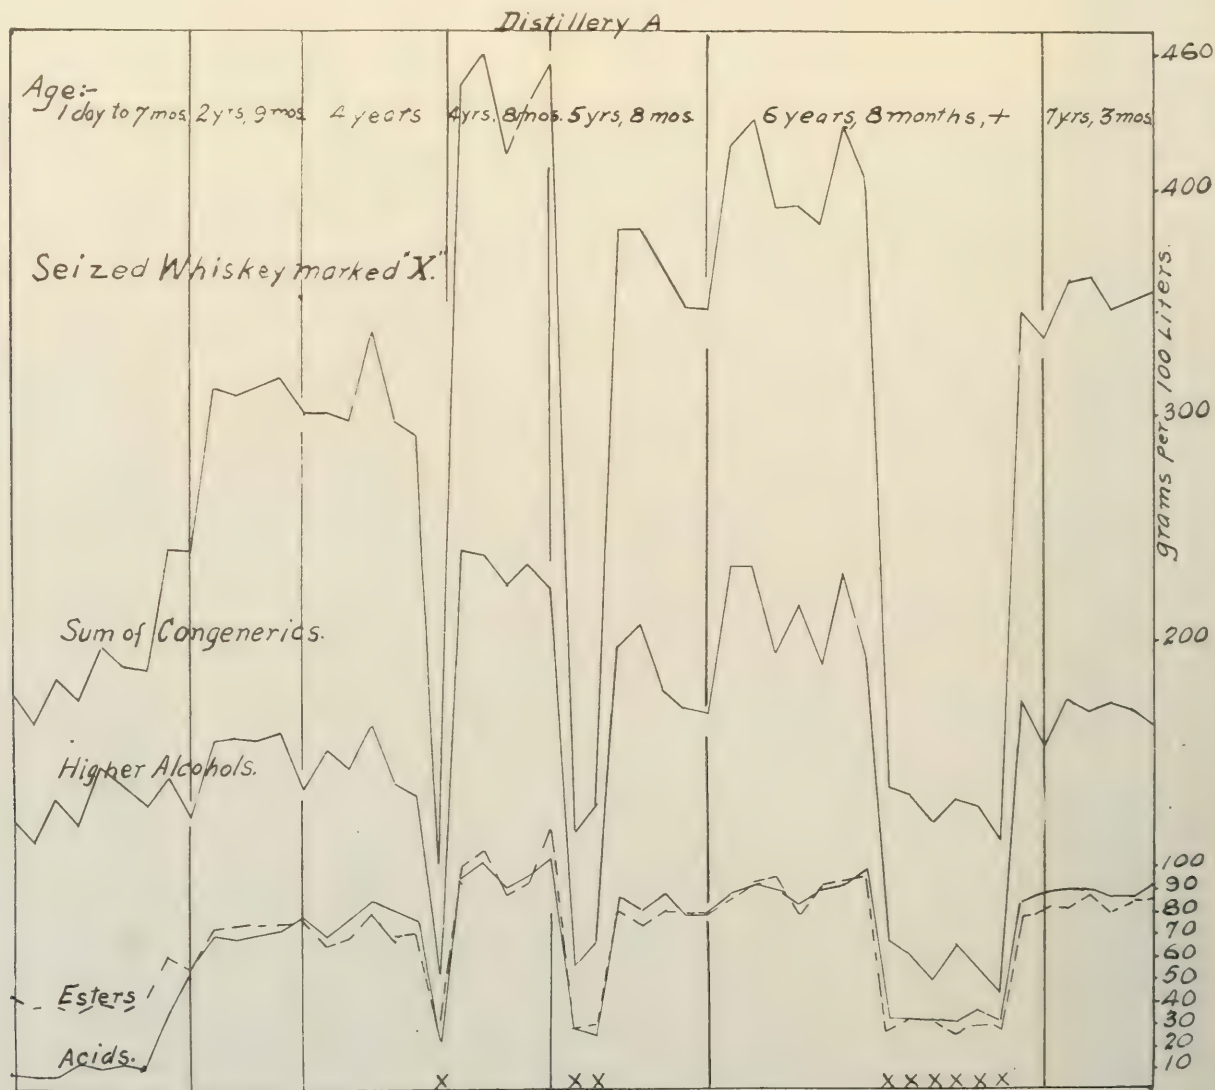 Distillery A
Age:-
1 day to 7 mos. 2 yrs, 9 mos. 4 years 4 yrs, 8 mos. 5 yrs, 8 mos. 6 years, 8 months, + 7 yrs, 3 mos.
Seized Whiskey marked "X."
Sum of Congenerics.
Higher Alcohols.
Esters
Acids.
X X X X X X X X X
460
400
300
200
100
90
80
70
60
50
40
30
20
10
grams per 100 Liters.